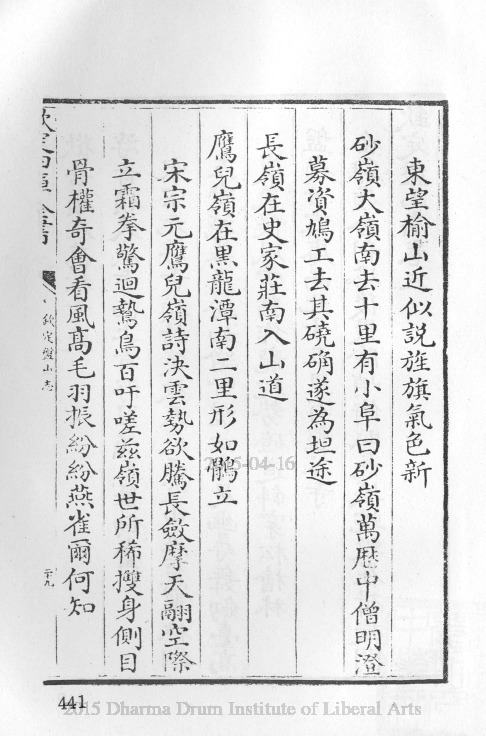 東望榆山近似說旌旗氣色新
砂嶺大嶺南去十里有小阜曰砂嶺萬厯中僧明澄
募資鳩工去其磽确遂為坦途
長嶺在史家莊南入山道
鷹兒嶺在黒龍潭南二里形如鶻立
宋宗元鷹兒嶺詩決雲勢欲騰長斂摩天翮空際
立霜拳驚迴鷙鳥百吁嗟兹嶺世所稀㩳身側目
骨權奇會看風髙毛羽振紛紛燕雀爾何知
欽定四庫全書
欽定盤山志
二十九
2015-04-16
441
2015 Dharma Drum Institute of Liberal Arts